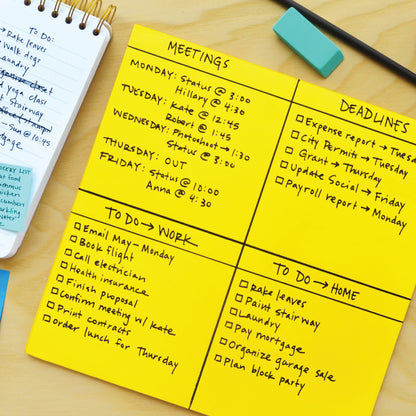 TO DO:
→ Rake leaves
Walk dogs
Laundry
yoga class
Stairway
Sun @ 10:45
GROCERY LIST
MEETINGS
MONDAY: Status @ 3:00
Hillary @ 4:30
TUESDAY: Kate @ 12:45
Robert @ 1:45
WEDNESDAY: Photoshoot → 1:30
Status @ 3:00
THURSDAY: OUT
FRIDAY: Status @ 10:00
Anna @ 4:30
DEADLINES
Expense report → Tuesda
City Permits → Tuesday
Grant → Thursday
Update Social → Friday
Payroll report → Monday
TO DO → WORK
Email May - Monday
Book flight
Call electrician
Health insurance
Finish puposal
Confirm meeting w/ Kate
Print contracts
Order lunch for Thursday
TO DO → HOME
Rake leaves
Paint stairway
Laundry
Pay mortgage
Organize garage sale
Plan block party